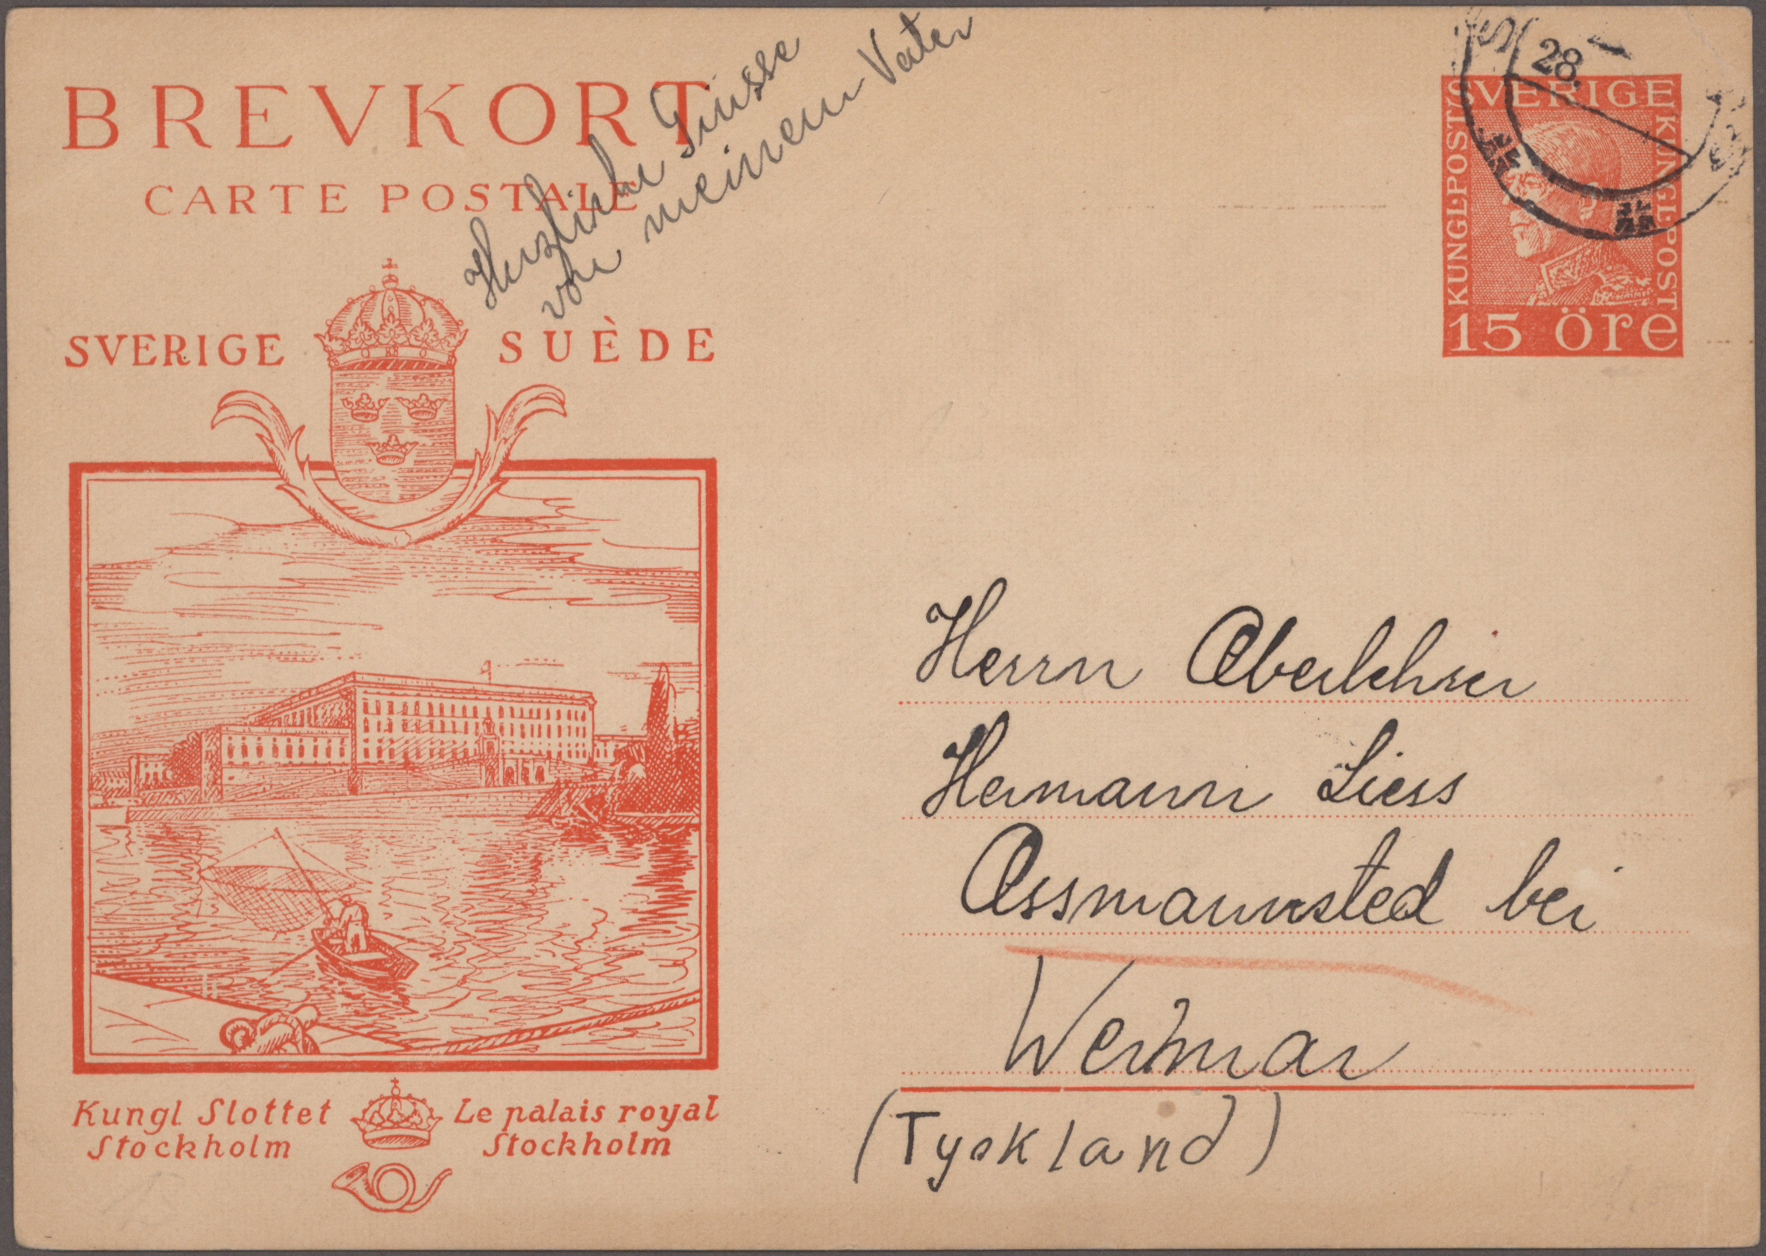 BREVKORT
CARTE POSTALE
SVERIGE SUÈDE
Herzliche Grüsse
von meinem Vater
28.
SVERIGE
KUNGL·POST
KUNGL·POST
15 öre
Herrn Oberlehrer
Hermann Liess
Ossmannsted bei
Weimar
(Tyskland)
Kungl. Slottet
Stockholm
Le palais royal
Stockholm